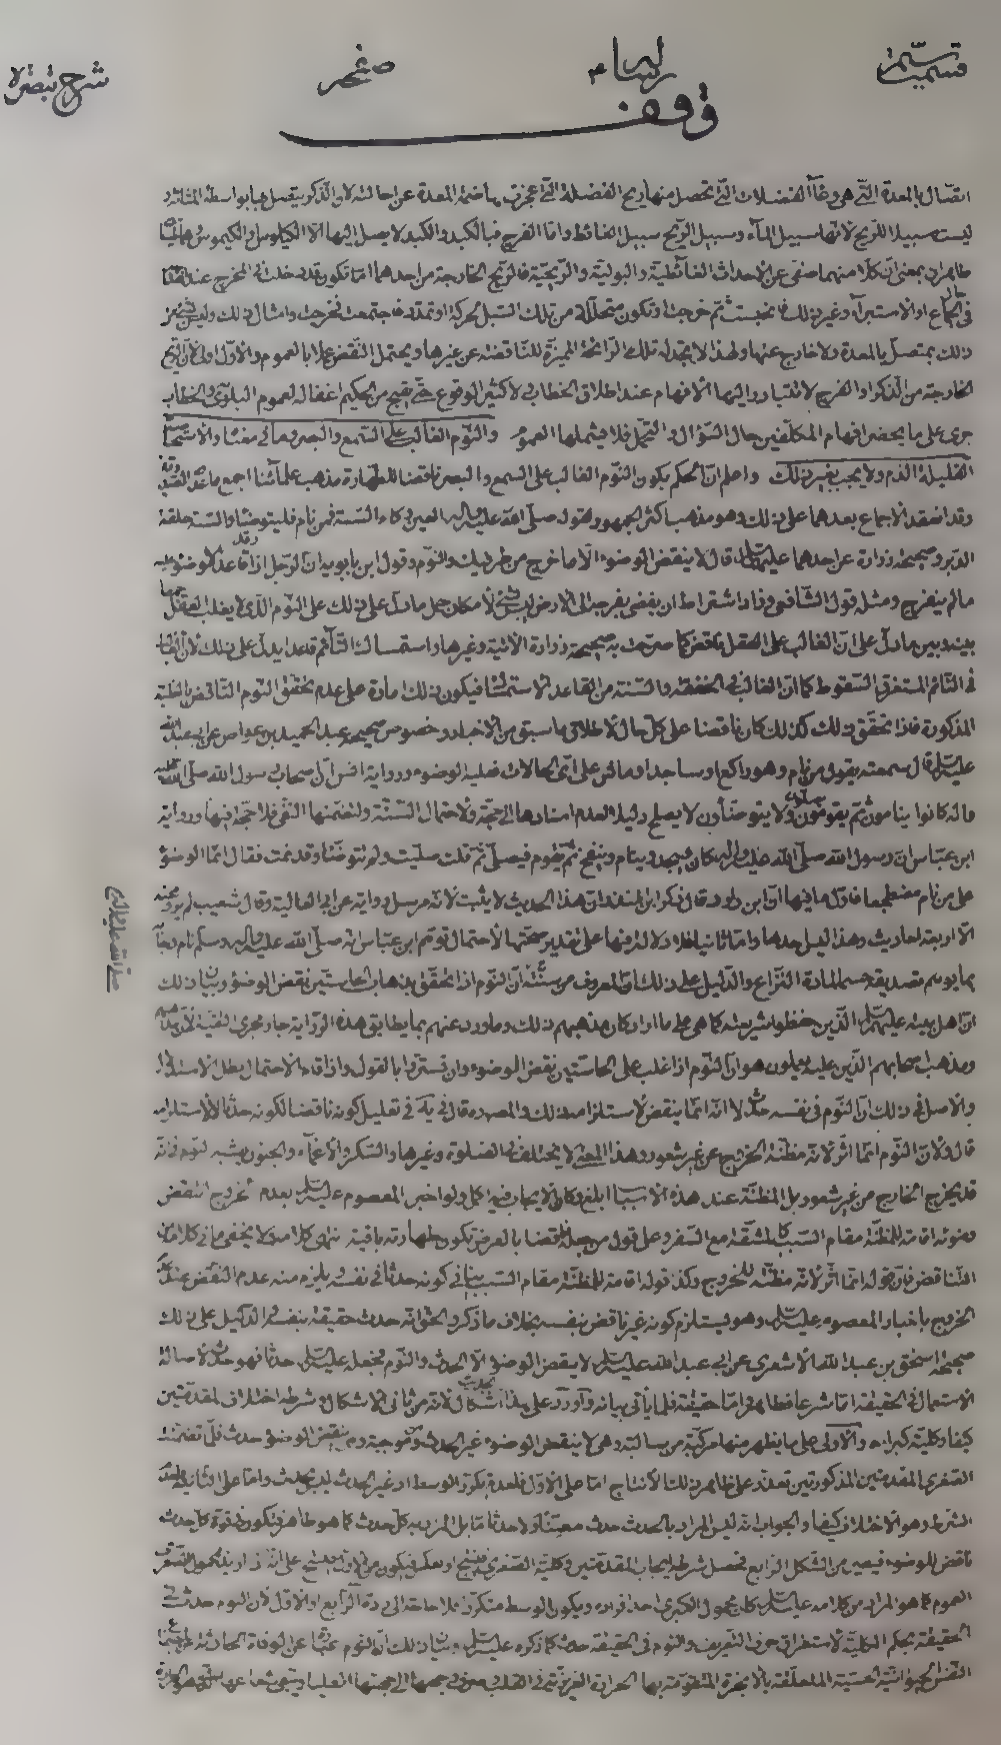 شرح تبصرة
وقف
اتصال بالمعدة التي هي وعاء الفضلات التي تحصل منها ريح الفضلة التي عجزت هاضمة المعدة عن احالته لان الذكر يتصل بها بواسطة المثانة و
ليست سبيلا للريح لانها سبيل الماء وسبيل الريح سبيل الغائط واما الفرج فبالكبد والكبد لا يصل اليها الا الكيلوس والكيموس
ظاهران بمعنى ان كلا منهما صفي عن الاحداث الغائطية والبولية والريحية فالريح الخارجة من احدهما اما تكون قد دخلت في الفرج عند
في الجماع او الاستبراء وغير ذلك فانحبست ثم خرجت او تكون متحللة من تلك السبل بحركة او تمدد فاجتمعت فخرجت وامثال ذلك وليس
ذلك بمتصل بالمعدة ولا خارج عنها ولهذا لا تجد له تلك الرائحة المميزة للناقضة عن غيرها ويحتمل النقض عملا بالعموم والاول اولى لان الريح
الخارجة من الذكر او الفرج لا تتبادر اليها الافهام عند اطلاق الخطاب ولا كثير الوقوع حتى يقبح من الحكيم اغفاله لعموم البلوى والخطاب
جرى على ما يحضر افهام المكلفين حال السؤال والتحمل فلا يشملها العموم والنوم الغالب على السمع والبصر وما في معناه والاستحاضة
القليلة الدم ولا يجب بغير ذلك واعلم ان الحكم بكون النوم الغالب على السمع والبصر ناقضا للطهارة مذهب علمائنا اجمع ما عدا
وقد انعقد الاجماع بعدهما على ذلك وهو مذهب اكثر الجمهور لقول صلى الله عليه واله العين وكاء السته فمن نام فليتوضأ والسته حلقة
الدبر وصحيحة زرارة عن احدهما عليهما السلام قال لا ينقض الوضوء الا ما خرج من طرفيك والنوم وقول ابن بابويه ان الرجل اذا رقد قاعدا لا وضوء عليه
ما لم ينفرج ومثله قول الشافعي وزاد اشتراط ان يفضي بفرجه الى الارض ليس بشيء لامكان حمل ما دل على ذلك على النوم الذي لا يغلب العقل جمعا
بينه وبين ما دل على ان الغالب على العقل ناقض كما صرحت به صحيحة زرارة الاتية وغيرها واستمساك النائم قاعدا يدل على ذلك لان الغالب
في النائم المستغرق السقوط كما ان الغالب في الخفقة والسنة من القاعد الاستمساك فيكون ذلك امارة على عدم تحقق النوم الناقض بالغلبة
المذكورة فاذا تحقق ذلك كذلك كان ناقضا على كل حال لاطلاق ما سبق من الاخبار وخصوص صحيحة عبد الحميد بن عواض عن ابي عبد الله
عليه السلام قال سمعته يقول من نام وهو راكع او ساجد او ماش على اي الحالات فعليه الوضوء ورواية انس ان اصحاب رسول الله صلى الله عليه
واله كانوا ينامون ثم يقومون يصلون ولا يتوضأون لا يصلح دليلا لعدم اسنادها الى حجة ولاحتمال السنة ولتضمنها النفي فلا حجة فيها ورواية
ابن عباس ان رسول الله صلى الله عليه واله كان يسجد وينام وينفخ ثم يقوم فيصلي ثم قلت صليت ولم تتوضأ وقد نمت فقال انما الوضوء
على من نام مضطجعا فاول ما فيها ان ابن داود قال ذكر ابن المنذر ان هذا الحديث لا يثبت لانه مرسل رواية عن ابي العالية وقال شعيب لم يرو عنه
الا اربعة احاديث وهذا ليس احدها واما ثانيا فلا دلالة فيها على تقدير صحتها الاحتمال توهم ابن عباس انه صلى الله عليه واله وسلم نام
صلى الله عليه واله
بما يوهم تصديقه حسما لمادة النزاع والدليل على ذلك ان المعروف من سنته ان النوم اذا تحقق بذهاب الحاستين نقض الوضوء وبيان ذلك
ان اهل بيته عليهم السلام الذين حفظوا شريعته كما هي على ما اراد كان مذهبهم ذلك وما ورد عنهم بما يطابق هذه الرواية جار مجرى التقية
ومذهب اصحابهم الذين عليه يعملون هو ان النوم اذا غلب على الحاستين نقض الوضوء وان تستروا بالقول واذا قام الاحتمال بطل الاستدلال
والاصل في ذلك ان النوم في نفسه حدث لا انه انما ينقض لاستلزامه ذلك والمصنف قال في كره في تعليل كونه ناقضا لكونه حدثا لاستلزامه
قال ولان النوم انما اثر لانه مظنة الخروج عن غير شعور وهذا المعنى لا يختلف في الصلوة وغيرها والسكر والاغماء والجنون يشبه النوم فانه
قد يخرج الخارج من غير شعور بل المظنة عند هذه الاسباب ابلغ فكان الايجاب فيه اكمل ولو اخبر المعصوم عليه السلام بعدم خروج انتقض
وضوئه اقامة للمظنة مقام السبب كالمشقة مع السفر وعلى قول من جعله ناقضا بالعرض تكون طهارته باقية انتهى كلامه ولا يخفى ما في كلامه من
التناقض فان قوله انما اثر لانه مظنة للخروج وكذا قوله اقامة للمظنة مقام السبب ينافي كونه حدثا في نفسه ويلزم منه عدم النقض عند عدم
الخروج باخبار المعصوم عليه السلام وهو يستلزم كونه غير ناقض بنفسه بخلاف ما ذكر والحق انه حدث حقيقة بنفسه والدليل على ذلك
صحيحة اسحق بن عبد الله الاشعري عن ابي عبد الله عليه السلام لا ينقض الوضوء الا الحدث والنوم فجعل عليه السلام حدثا فهو حدث لاصالة
الاستعمال في الحقيقة اما شرعا فظاهر واما حقيقة فلما يأتي بيانه واورد على هذا الحديث اشكال لانه من ثاني الاشكال وشرطه اختلاف المقدمتين
كيفا وكلية كبراه والاولى على ما يظهر منها مركبة من سالبة وهي لا ينقض الوضوء غير الحدث وموجبة وهي ينقض الوضوء حدث فلما تضمنت
الصغرى المقدمتين المذكورتين تعذر على ظاهر ذلك الانتاج اما على الاول فلعدم تكرر الوسط اذ غير الحدث ليس بحدث واما على الثاني فلعدم
الشرط وهو الاختلاف كيفا والجواب انه ليس المراد بالحدث حدث معينا ولا حدثا ما بل المراد به كل حدث كما هو ظاهر فتكون في قوة كل حدث
ناقض للوضوء فيصير من الشكل الرابع فحصل شرطه ايجاب المقدمتين وكلية الصغرى فينتج او يعكس فيكون من الاول فينتج على انه اذا اريد بمحمول الصغرى
العموم كما هو المراد من كلامه عليه السلام كان محمول الكبرى احد افراده ويكون الوسط متكررا فلا حاجة الى رده الرابع او الاول لان النوم حدث في
الحقيقة بحكم الكلية لاستغراق حرف التعريف والنوم في الحقيقة حدث كما ذكره عليه السلام وبيان ذلك ان النوم عبارة عن الوفاة الحادثة
النفس الحيوانية الحسية المتعلقة بالابخرة المتقومة بها الحرارة الغريزية في القلب